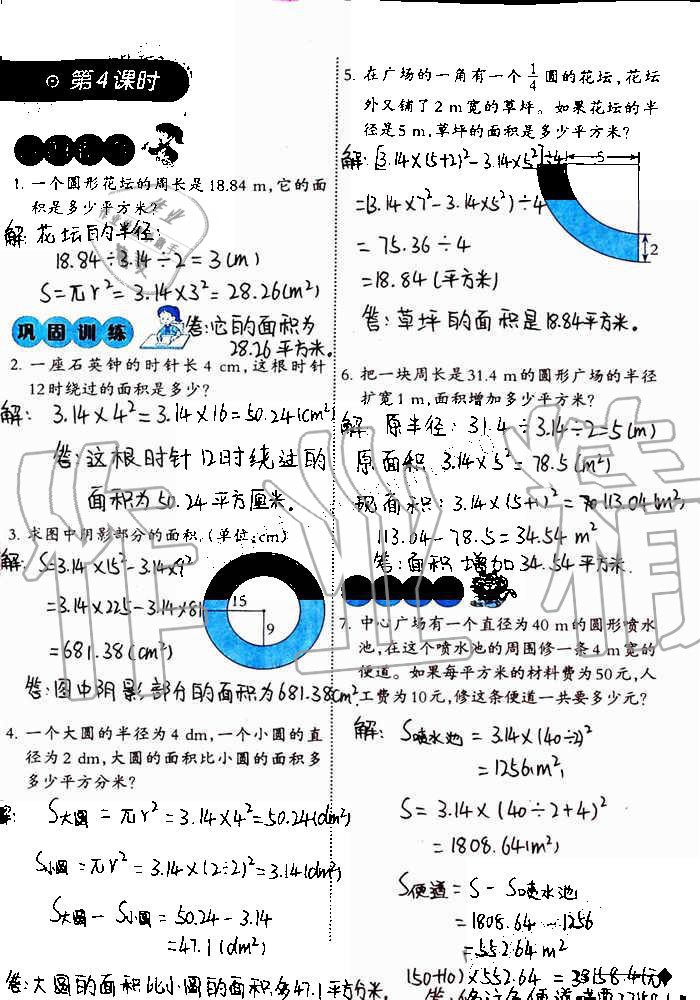 第4课时
1. 一个圆形花坛的周长是18.84 m,它的面
积是多少平方米?
解:花坛的半径:
18.84÷3.14÷2=3(m)
S=πr²=3.14×3²=28.26(m²)
答:它的面积为
28.26平方米。
巩固训练
2. 一座石英钟的时针长4 cm,这根时针
12时绕过的面积是多少?
解:3.14×4²=3.14×16=50.24(cm²)
答:这根时针12时绕过的
面积为50.24平方厘米。
3. 求图中阴影部分的面积.(单位:cm)
解:S=3.14×15²-3.14×9²
=3.14×225-3.14×81
=681.38(cm²)
15
9
答:图中阴影部分的面积为681.38cm².
4. 一个大圆的半径为4 dm,一个小圆的直
径为2 dm,大圆的面积比小圆的面积多
多少平方分米?
解:S大圆=πr²=3.14×4²=50.24(dm²)
S小圆=πr²=3.14×(2÷2)²=3.14(dm²)
S大圆-S小圆=50.24-3.14
=47.1(dm²)
答:大圆的面积比小圆的面积多47.1平方分米.
5. 在广场的一角有一个1/4圆的花坛,花坛
外又铺了2 m宽的草坪。如果花坛的半
径是5 m,草坪的面积是多少平方米?
解:[3.14×(5+2)²-3.14×5²]÷4
=(3.14×7²-3.14×5²)÷4
=75.36÷4
=18.84(平方米)
5
2
答:草坪的面积是18.84平方米。
6. 把一块周长是31.4 m的圆形广场的半径
扩宽1 m,面积增加多少平方米?
解:原半径:31.4÷3.14÷2=5(m)
原面积:3.14×5²=78.5(m²)
现面积:3.14×(5+1)²=113.04(m²)
113.04-78.5=34.54m²
答:面积增加34.54平方米.
7. 中心广场有一个直径为40 m的圆形喷水
池,在这个喷水池的周围修一条4 m宽的
便道。如果每平方米的材料费为50元,人
工费为10元,修这条便道一共要多少元?
解:S喷水池=3.14×(40÷2)²
=1256(m²)
S=3.14×(40÷2+4)²
=1808.64(m²)
S便道=S-S喷水池
=1808.64-1256
=552.64m²
(50+10)×552.64=33158.4(元)
作业精